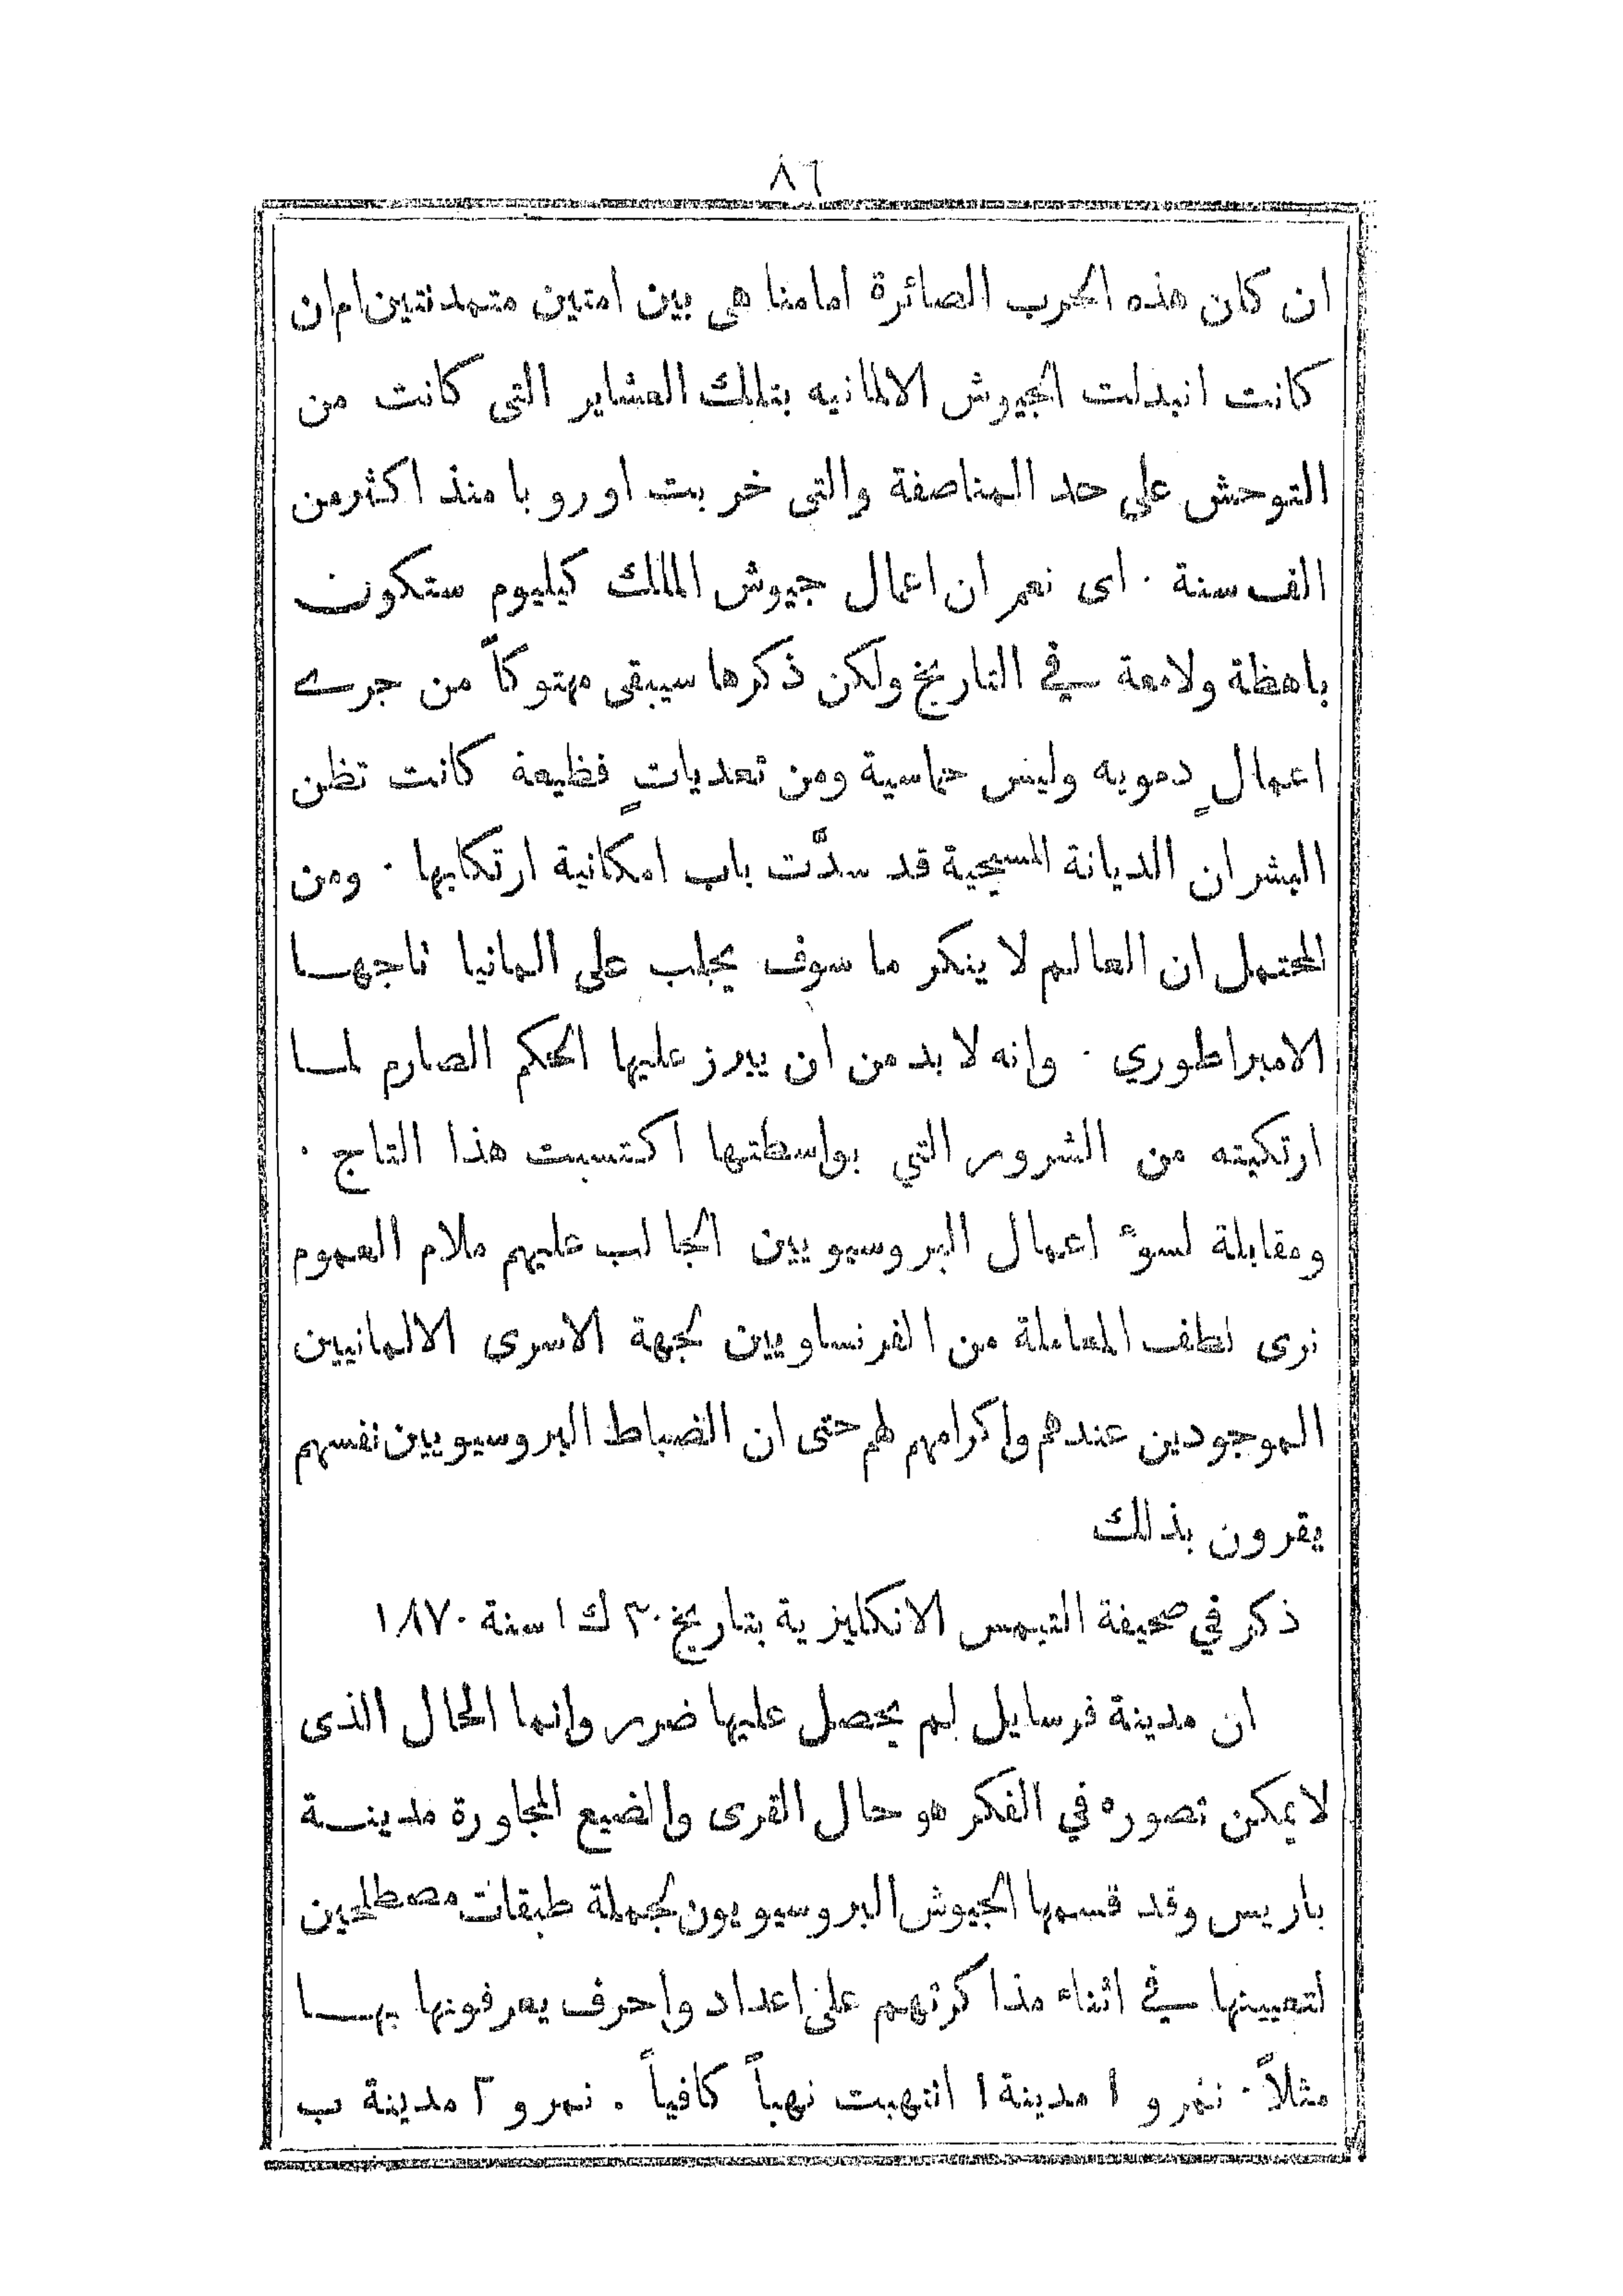 ٨٦
ان كان هذه الحرب الصائرة امامنا هى بين امتين متمدنتين ام ان
كانت انبدلت الجيوش الالمانيه بتلك العشاير التى كانت من
التوحش على حد المناصفة والتى خربت اوروبا منذ اكثر من
الف سنة · اى نعم ان اعمال جيوش الملك كيليوم ستكون
باهظة ولامعة في التاريخ ولكن ذكرها سيبقى مهتوكاً من جرے
اعمالٍ دمويه وليس حماسية ومن تعدياتٍ فظيعة كانت تظن
البشر ان الديانة المسيحية قد سدَّت باب امكانية ارتكابها · ومن
المحتمل ان العالم لا ينكر ما سوف يجلب على المانيا تاجهـا
الامبراطوري · وانه لا بد من ان يبرز عليها الحكم الصارم لمـا
ارتكبته من الشرور التي بواسطتها اكتسبت هذا التاج ·
ومقابلة لسوءِ اعمال البروسيويين الجالب عليهم ملام العموم
نرى لطف المعاملة من الفرنساويين لجهة الاسرى الالمانيين
الموجودين عندهم واكرامهم لهم حتى ان الضباط البروسيويين نفسهم
يقرون بذلك
ذكر في صحيفة التيمس الانكليزية بتاريخ ٣٠ ك ١ سنة ١٨٧٠
ان مدينة فرسايل لم يحصل عليها ضرر وانما الحال الذى
لا يمكن تصوره في الفكر هو حال القرى والضيع المجاورة مدينـة
باريس وقد قسمها الجيوش البروسيويون لجملة طبقات مصطلحين
لتعيينها في اثناء مذاكرتهم على اعداد واحرف يعرفونها بهـا
مثلاً · نمرو ١ مدينة ا انتهبت نهباً كافياً . نمرو ٢ مدينة ب